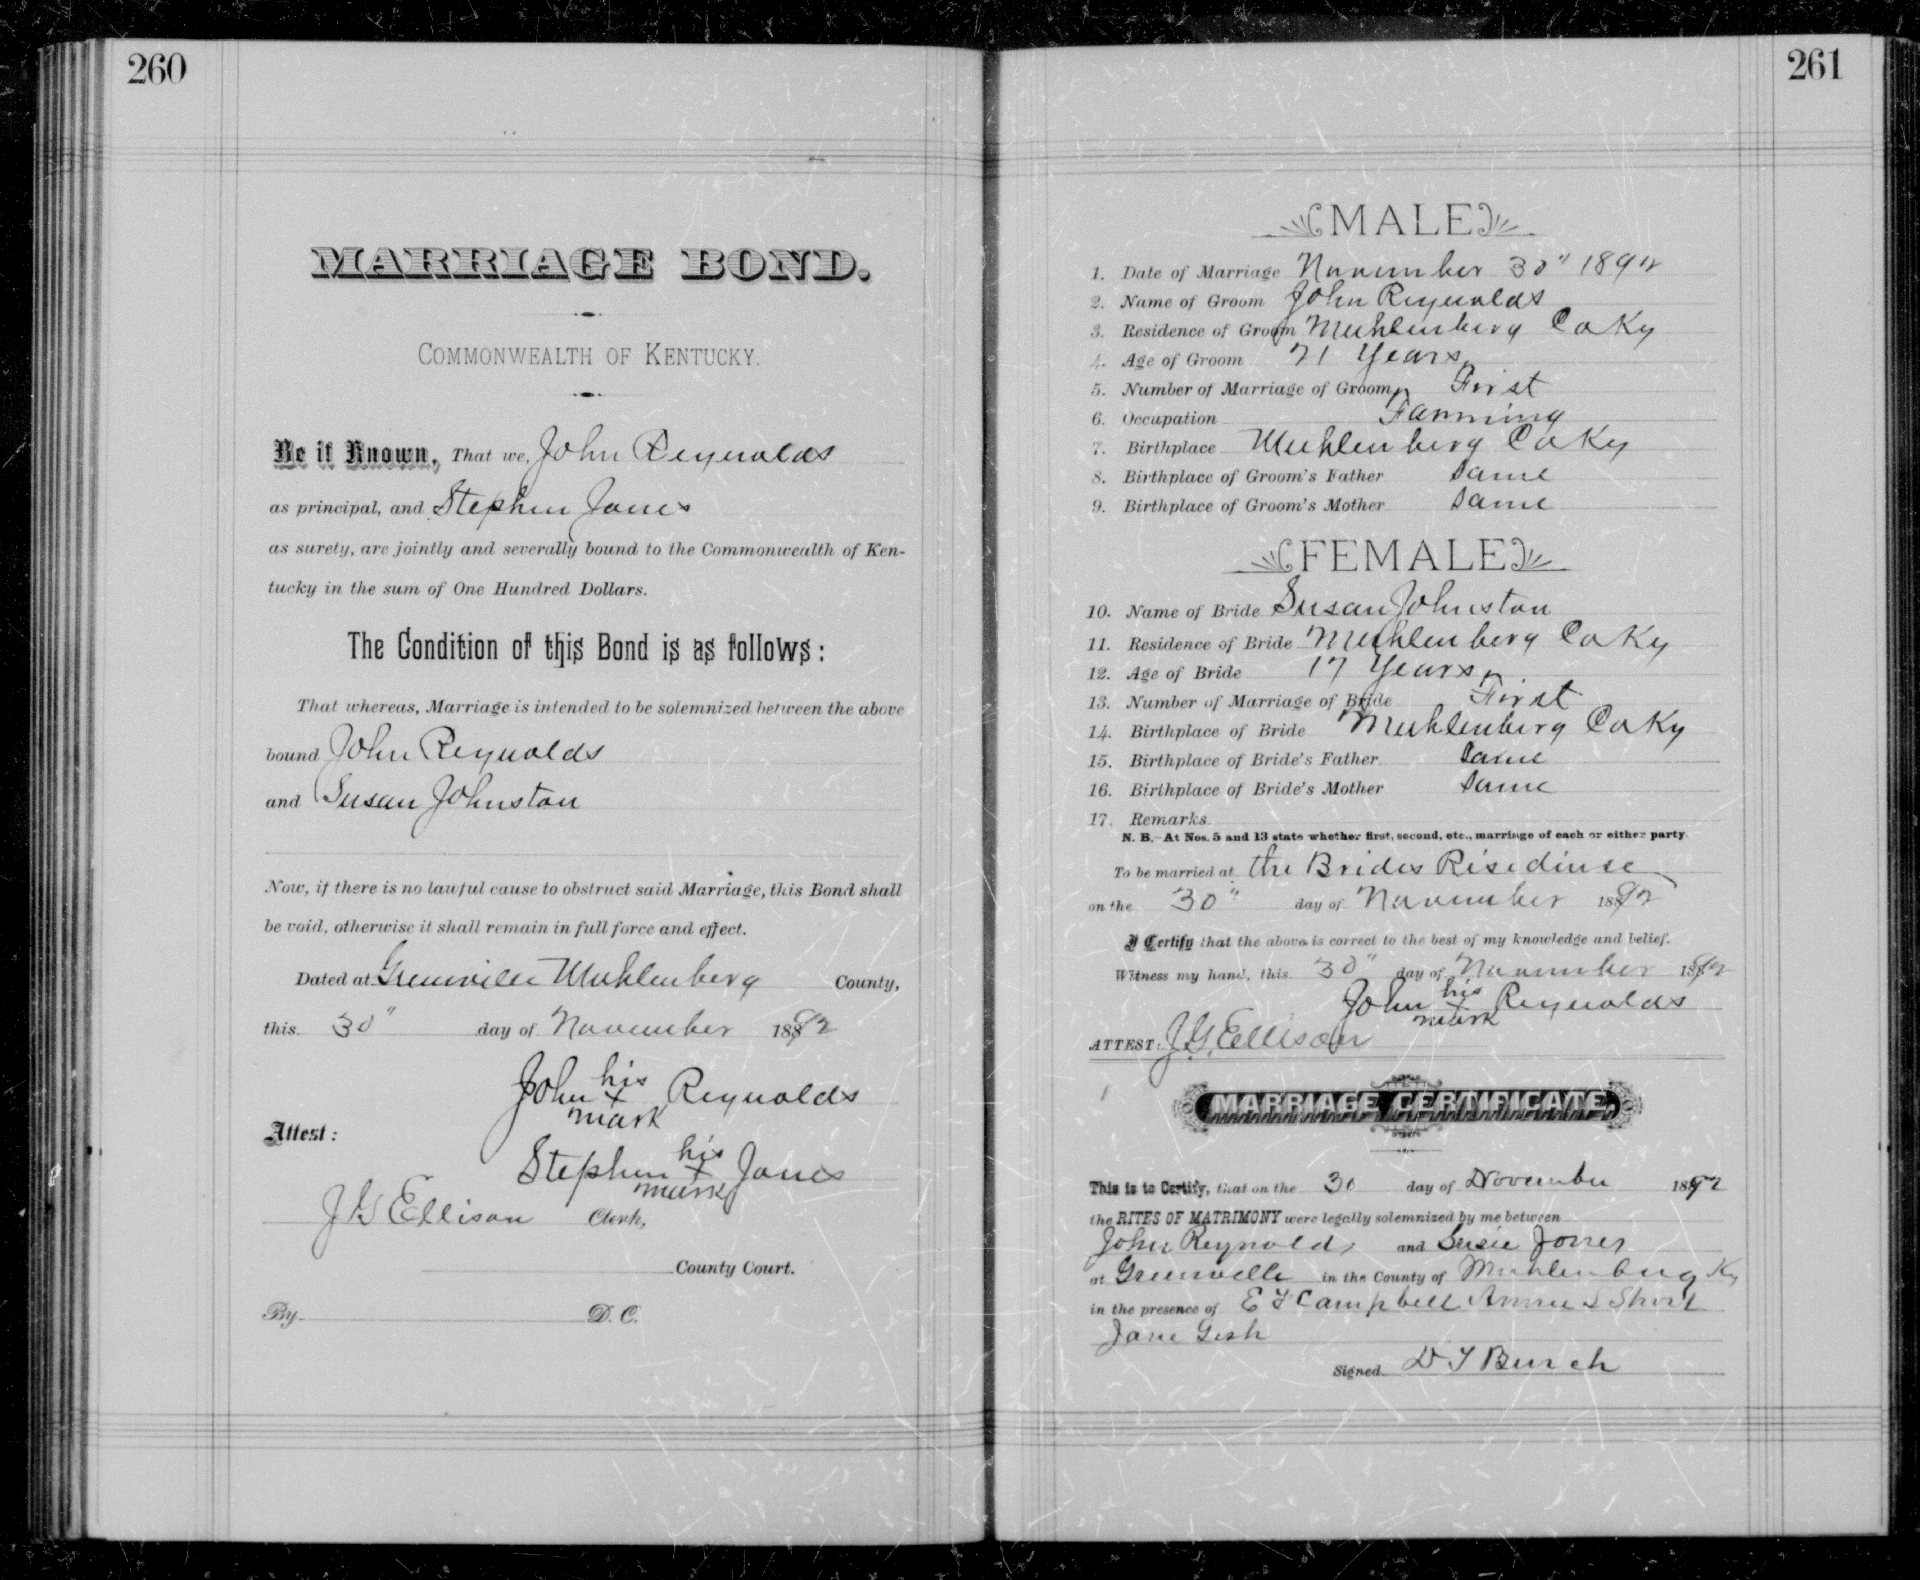 260
MARRIAGE BOND.
COMMONWEALTH OF KENTUCKY.
Be it Known, That we, John Reynolds
as principal, and Stephen Jones
as surety, are jointly and severally bound to the Commonwealth of Ken-
tucky in the sum of One Hundred Dollars.
The Condition of this Bond is as follows:
That whereas, Marriage is intended to be solemnized between the above
bound John Reynolds
and Susan Johnston
Now, if there is no lawful cause to obstruct said Marriage, this Bond shall
be void, otherwise it shall remain in full force and effect.
Dated at Greenville Muhlenberg County,
this 30" day of November 1892
John his x mark Reynolds
Attest:
Stephen his x mark Jones
J G Ellison Clerk,
County Court.
By D. C.
261
MALE
1. Date of Marriage November 30" 1892
2. Name of Groom John Reynolds
3. Residence of Groom Muhlenberg Co Ky
4. Age of Groom 21 Years
5. Number of Marriage of Groom First
6. Occupation Farming
7. Birthplace Muhlenberg Co Ky
8. Birthplace of Groom's Father Same
9. Birthplace of Groom's Mother Same
FEMALE
10. Name of Bride Susan Johnston
11. Residence of Bride Muhlenberg Co Ky
12. Age of Bride 17 Years
13. Number of Marriage of Bride First
14. Birthplace of Bride Muhlenberg Co Ky
15. Birthplace of Bride's Father Same
16. Birthplace of Bride's Mother Same
17. Remarks
N. B.—At Nos. 5 and 13 state whether first, second, etc., marriage of each or either party
To be married at the Brides Risedinse
on the 30" day of November 1892
I Certify that the above is correct to the best of my knowledge and belief.
Witness my hand, this 30" day of November 1892
John his x mark Reynolds
ATTEST: J. G. Ellison
MARRIAGE CERTIFICATE.
This is to Certify, that on the 30 day of November 1892
the RITES OF MATRIMONY were legally solemnized by me between
John Reynolds and Susie Jones
at Greenville in the County of Muhlenburg Ky
in the presence of E F Campbell Annie L Short
Jane Gish
Signed D T Burch